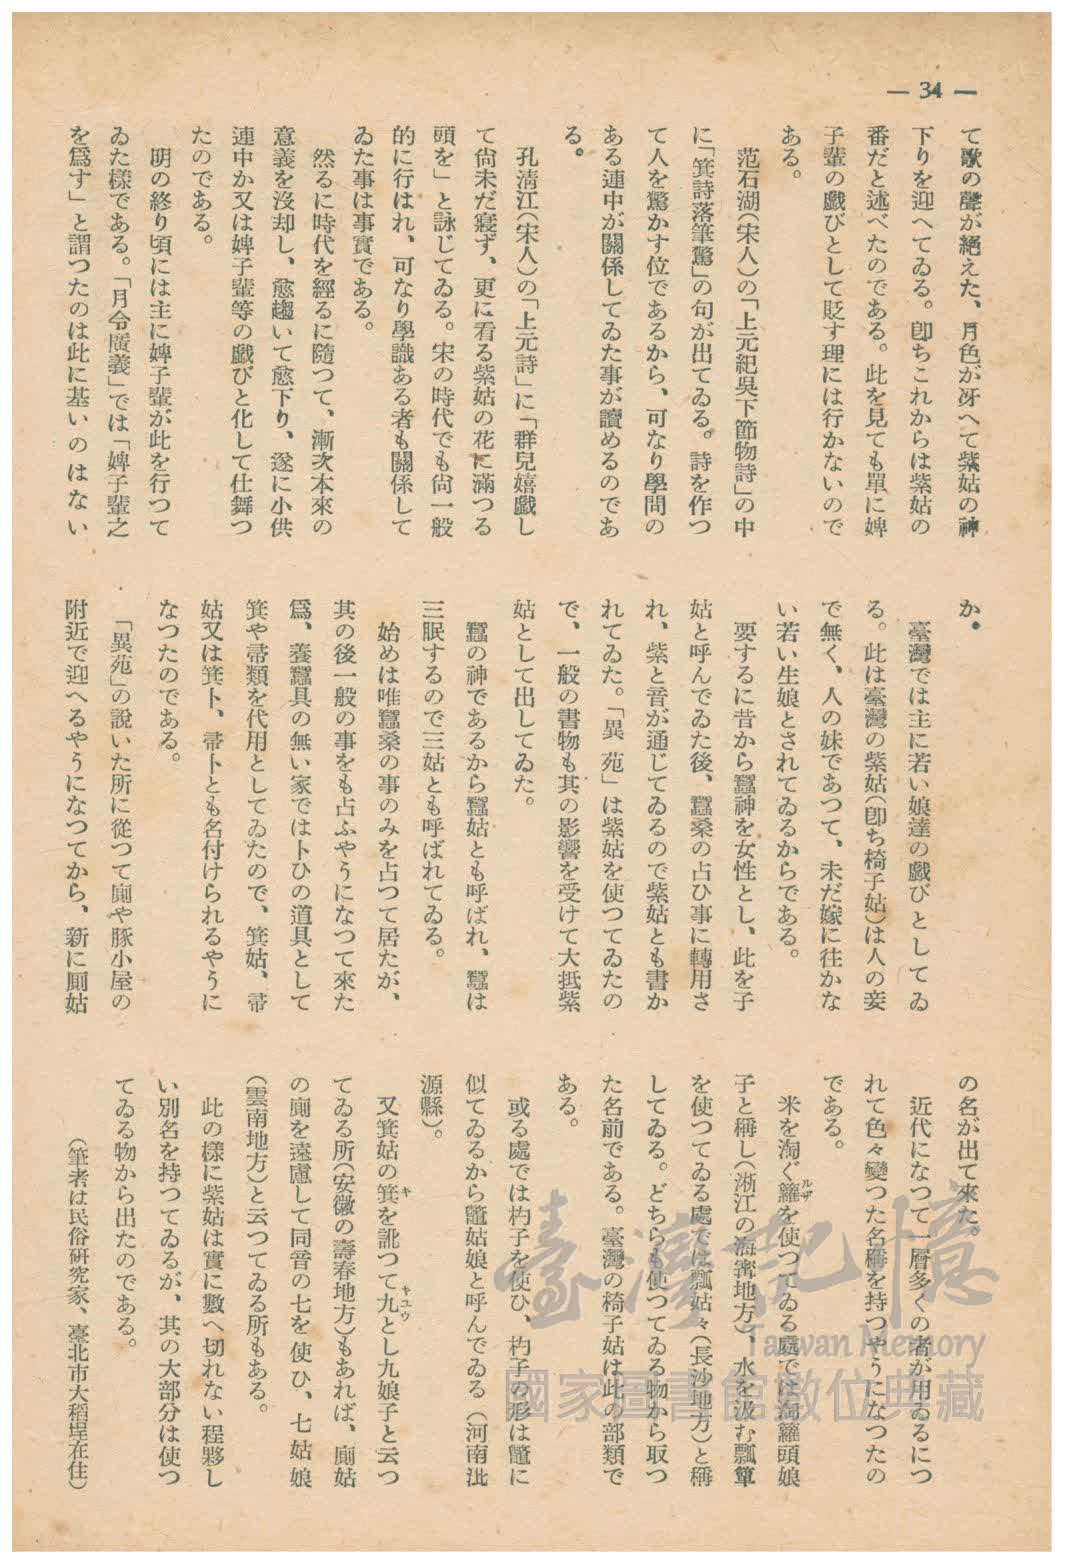 — 34 —
て歌の聲が絕えた、月色が冴へて紫姑の神
下りを迎へてゐる。卽ちこれからは紫姑の
番だと述べたのである。此を見ても單に婢
子輩の戲びとして貶す理には行かないので
ある。
范石湖(宋人)の「上元紀吳下節物詩」の中
に「箕詩落筆驚」の句が出てゐる。詩を作つ
て人を驚かす位であるから、可なり學問の
ある連中が關係してゐた事が讀めるのであ
る。
孔淸江(宋人)の「上元詩」に「群兒嬉戲し
て尙未だ寢ず、更に看る紫姑の花に滿つる
頭を」と詠じてゐる。宋の時代でも尙一般
的に行はれ、可なり學識ある者も關係して
ゐた事は事實である。
然るに時代を經るに隨つて、漸次本來の
意義を沒却し、愈趨いて愈下り、遂に小供
連中か又は婢子輩等の戲びと化して仕舞つ
たのである。
明の終り頃には主に婢子輩が此を行つて
ゐた樣である。「月令廣義」では「婢子輩之
を爲す」と謂つたのは此に基いのはない
か。
臺灣では主に若い娘達の戲びとしてゐ
る。此は臺灣の紫姑(卽ち椅子姑)は人の妾
で無く、人の妹であつて、未だ嫁に往かな
い若い生娘とされてゐるからである。
要するに昔から蠶神を女性とし、此を子
姑と呼んでゐた後、蠶桑の占ひ事に轉用さ
れ、紫と音が通じてゐるので紫姑とも書か
れてゐた。「異苑」は紫姑を使つてゐたの
で、一般の書物も其の影響を受けて大抵紫
姑として出してゐた。
蠶の神であるから蠶姑とも呼ばれ、蠶は
三眠するので三姑とも呼ばれてゐる。
始めは唯蠶桑の事のみを占つて居たが、
其の後一般の事をも占ふやうになつて來た
爲、養蠶具の無い家では卜ひの道具として
箕や帚類を代用としてゐたので、箕姑、帚
姑又は箕卜、帚卜とも名付けられるやうに
なつたのである。
「異苑」の說いた所に從つて廁や豚小屋の
附近で迎へるやうになつてから、新に廁姑
の名が出て來た。
近代になつて一層多くの者が用ゐるにつ
れて色々變つた名稱を持つやうになつたの
である。
米を淘ぐ籮ルザを使つてゐる處では淘籮頭娘
子と稱し(浙江の海寧地方)、水を汲む瓢簞
を使つてゐる處では瓢姑々(長沙地方)と稱
してゐる。どちらも使つてゐる物から取つ
た名前である。臺灣の椅子姑は此の部類で
ある。
或る處では杓子を使ひ、杓子の形は鼈に
似てゐるから鼈姑娘と呼んでゐる(河南泚
源縣)。
又箕姑の箕キを訛つて九キユウとし九娘子と云つ
てゐる所(安徽の壽春地方)もあれば、廁姑
の廁を遠慮して同音の七を使ひ、七姑娘
(雲南地方)と云つてゐる所もある。
此の樣に紫姑は實に數へ切れない程夥し
い別名を持つてゐるが、其の大部分は使つ
てゐる物から出たのである。
(筆者は民俗硏究家、臺北市大稻埕在住)
臺灣記憶
Taiwan Memory
國家圖書館數位典藏